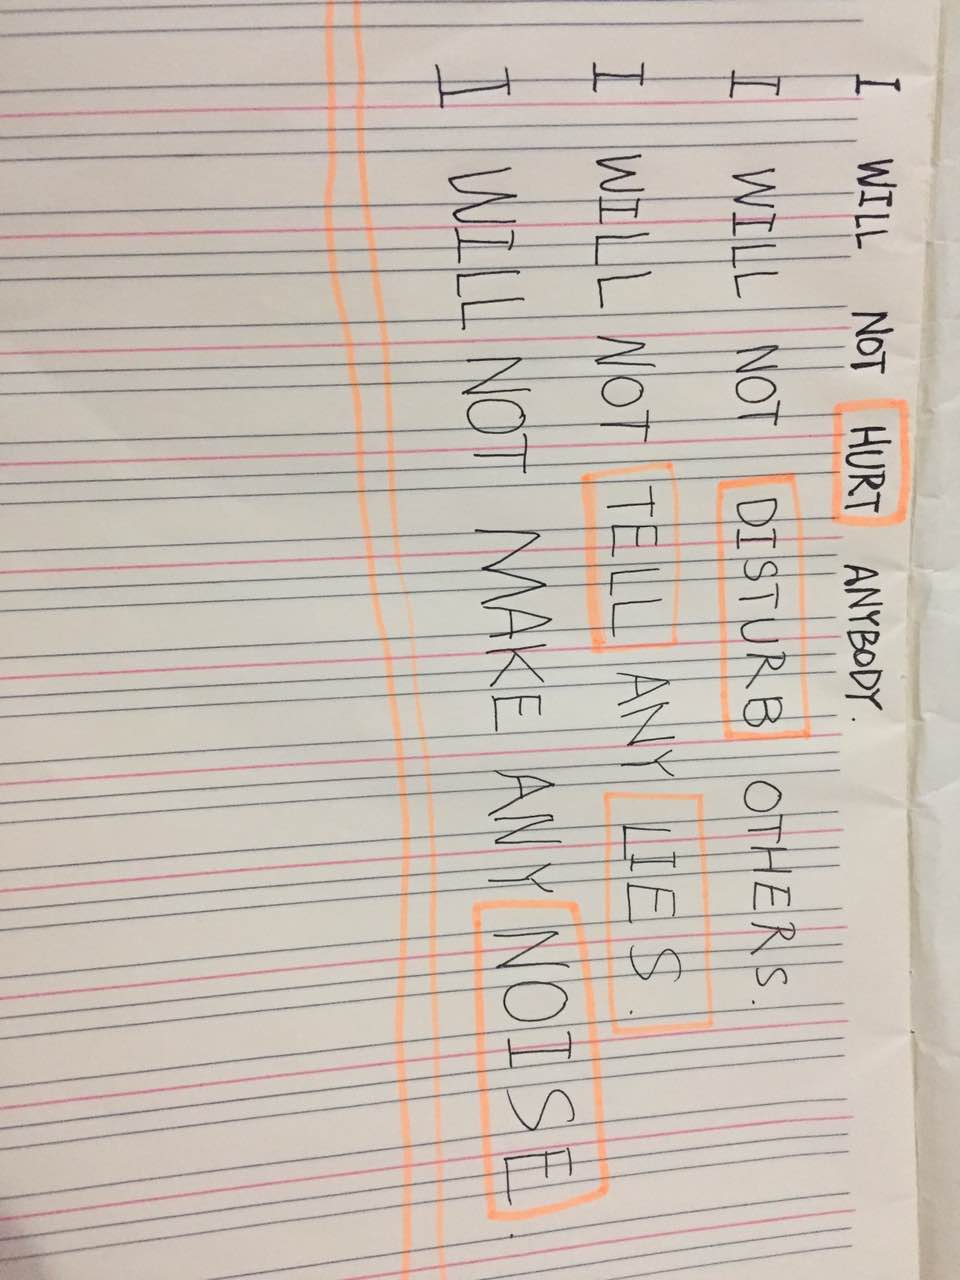 I WILL NOT HURT ANYBODY.
I WILL NOT DISTURB OTHERS.
I WILL NOT TELL ANY LIES.
I WILL NOT MAKE ANY NOISE.